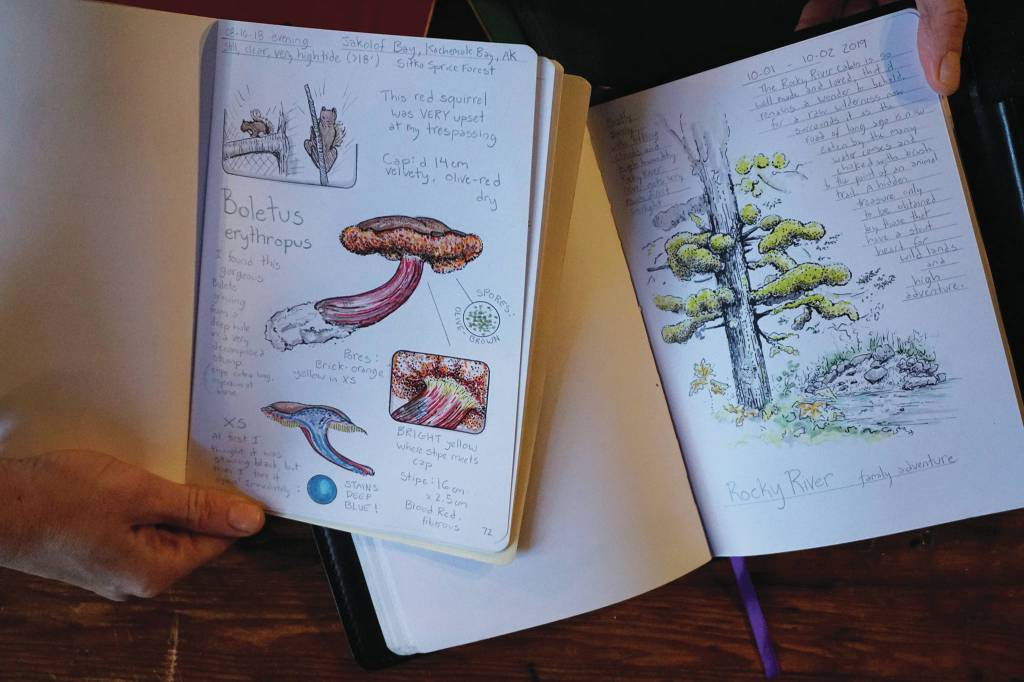 08-10-18 evening
still, clear, very high tide (>18')
Jakolof Bay, Kachemak Bay, AK
Sitka Spruce Forest
This red squirrel
was VERY upset
at my trespassing
Cap: d 14cm
velvety, olive-red
dry
Boletus
erythropus
I found this
gorgeous
Bolete
growing
from a
deep hole
in a very
decomposed
stump.
Stipe extra long,
at
base
SPORES:
OLIVE
BROWN
Pores:
Brick-orange
yellow in XS
XS
at first I
thought it was
staining black, but
it
immediately:
STAINS
DEEP
BLUE!
BRIGHT yellow
where stipe meets
cap
Stipe: 16cm
x 2.5cm
Blood Red,
fibrous
72
10-01 - 10-02 2019
The Rocky River Cabin is so
well made and loved, that it
remains a wonder to behold
for a rabid wilderness now
surrounds it as the
road of long ago is now
eaten by the many
water courses and
choked with brush
to the point of an animal
trail. A hidden
treasure only
to be obtained
by those that
have a stout
heart for
wild lands
and
high
adventure.
Rocky River family adventure